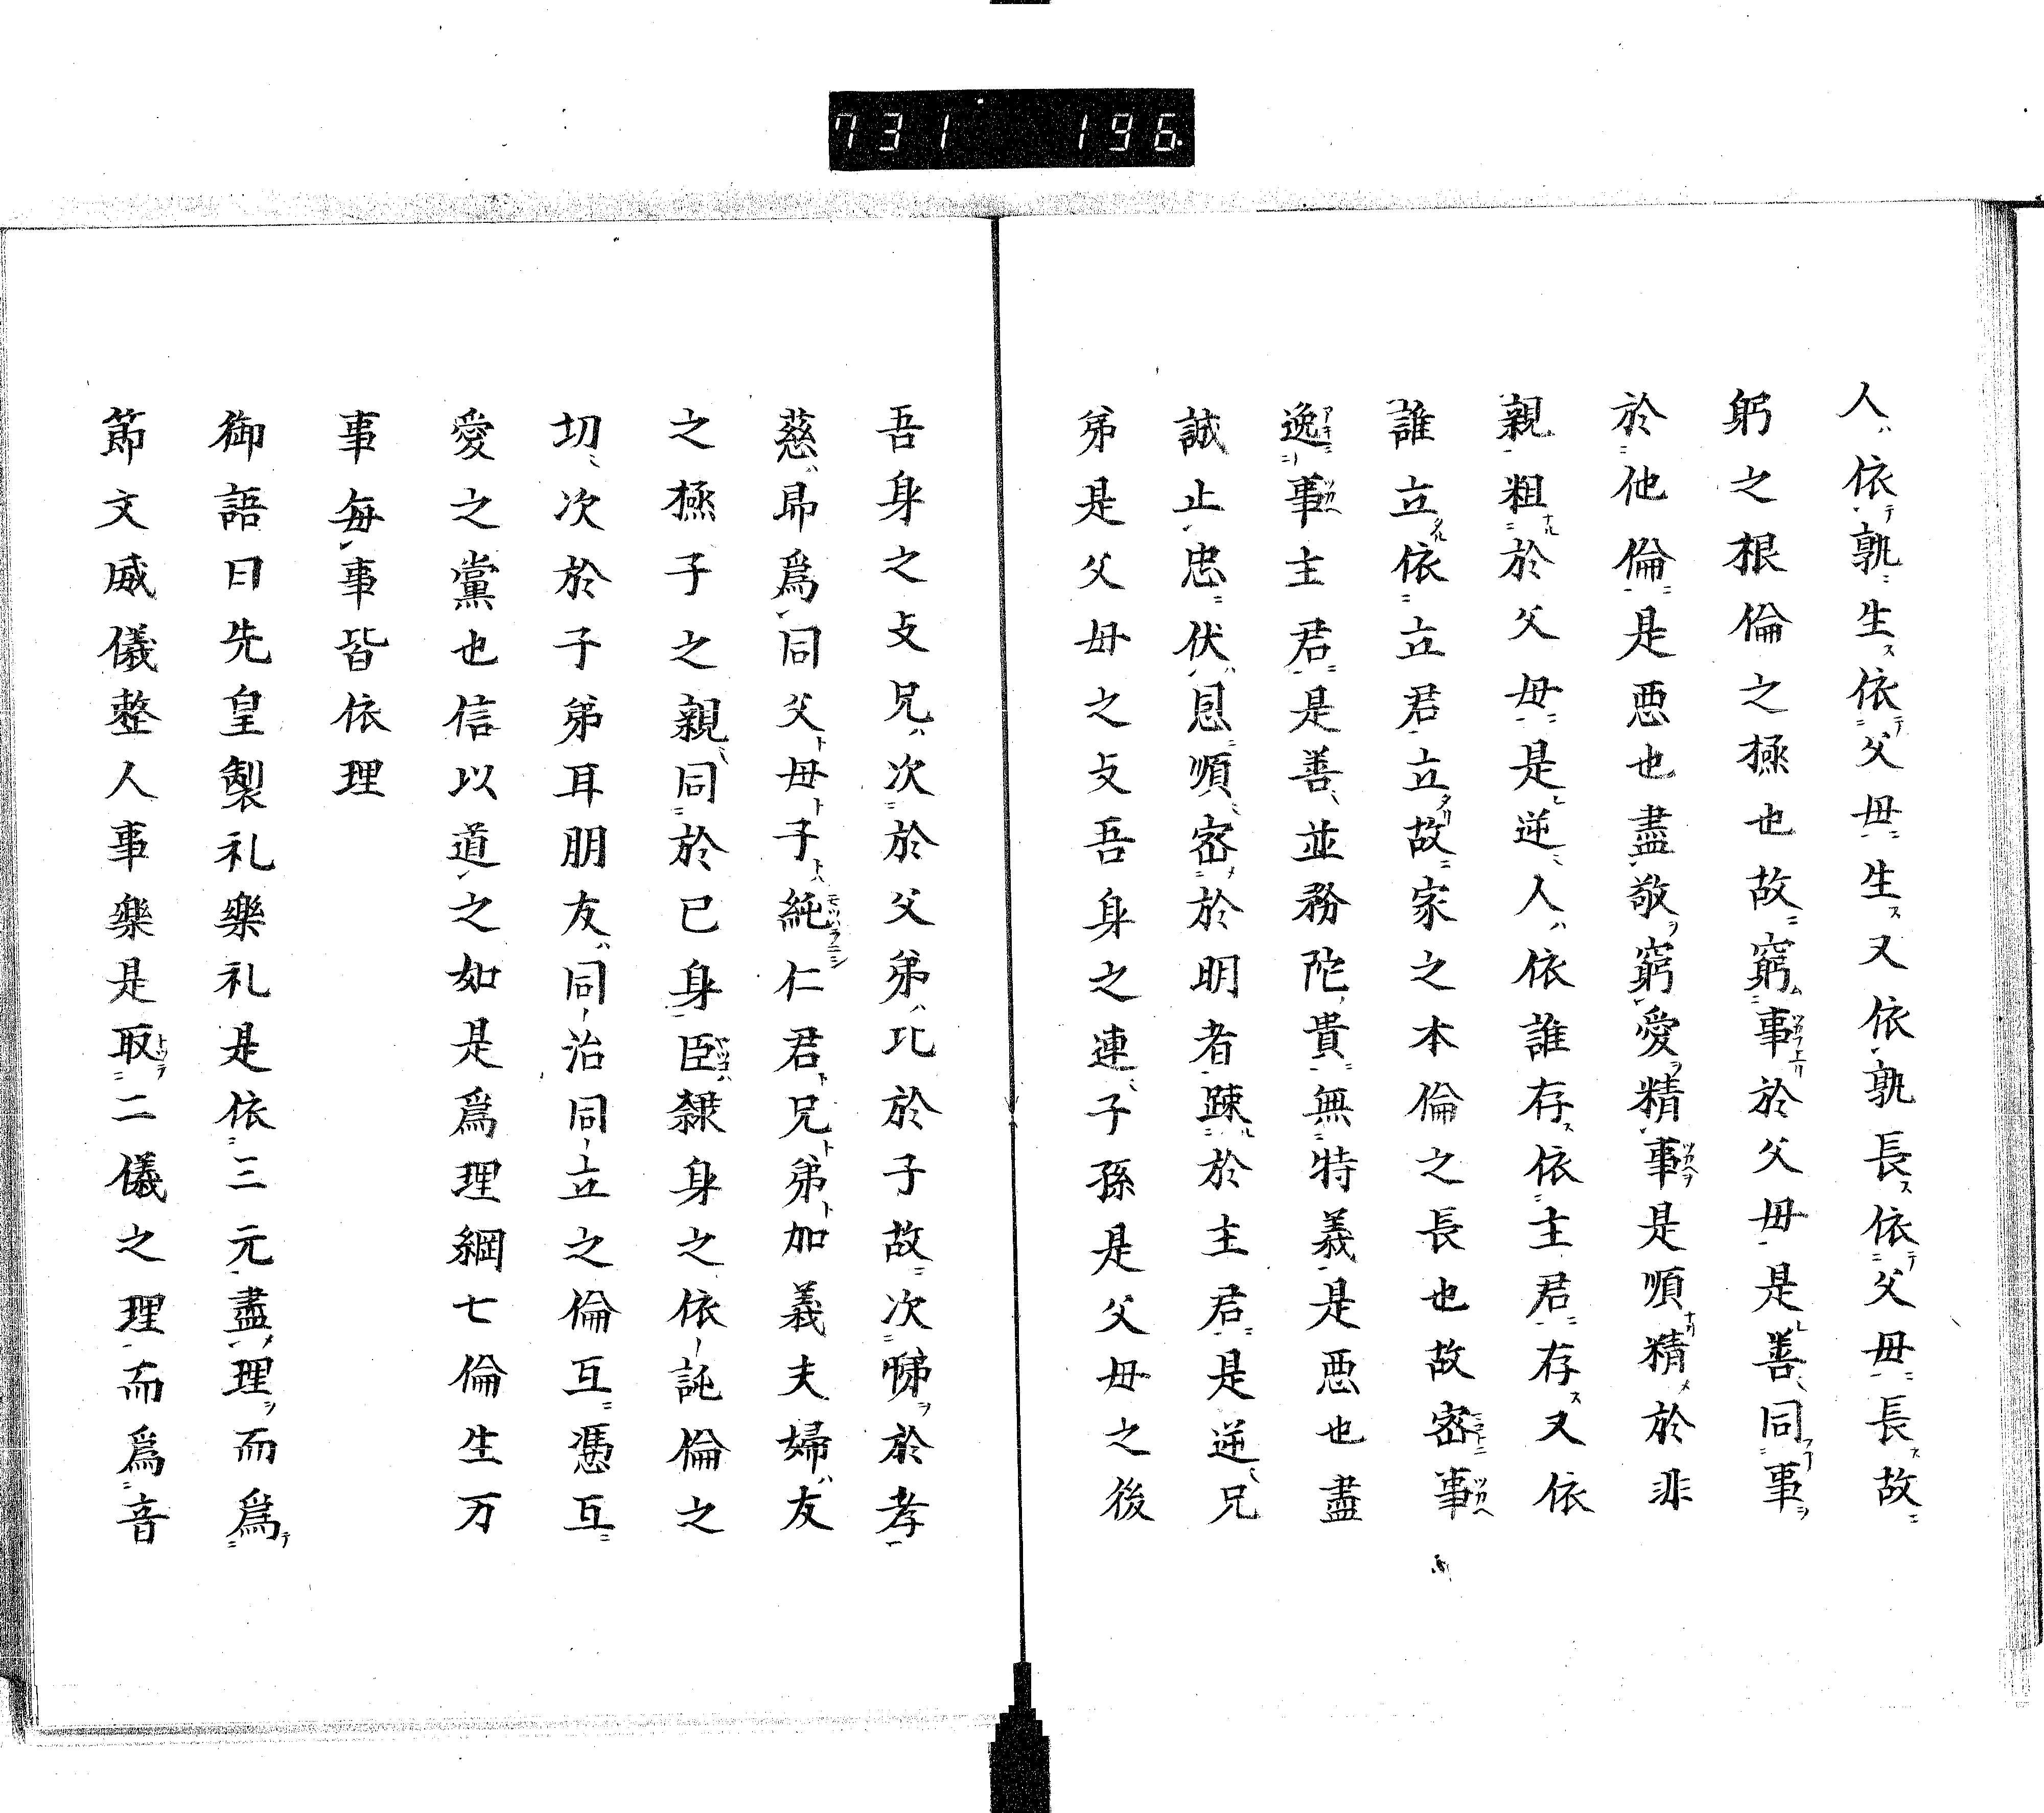 731 196
人依孰生依父母生又依孰長依父母長故
躬之根倫之極也故窮事於父母是善同事
於他倫是悪也盡敬窮愛精事是順精於非
親粗於父母是逆人依誰存依主君存又依
誰立依立君立故家之本倫之長也故密事
逸事主君是善並務陀貴無特義是悪也盡
誠止忠伏恩順密於明者踈於主君是逆兄
弟是父母之攴吾身之連子孫是父母之後
吾身之攴兄次於父弟比於子故次悌於孝
慈昂爲同父母子純仁君兄弟加義夫婦友
之極子之親同於已身臣隸身之依託倫之
切次於子弟耳朋友同治同立之倫互憑互
愛之黨也信以道之如是爲理綱七倫生万
事每事皆依理
御語曰先皇製礼樂礼是依三元盡理而爲
節文威儀整人事樂是取二儀之理而爲音